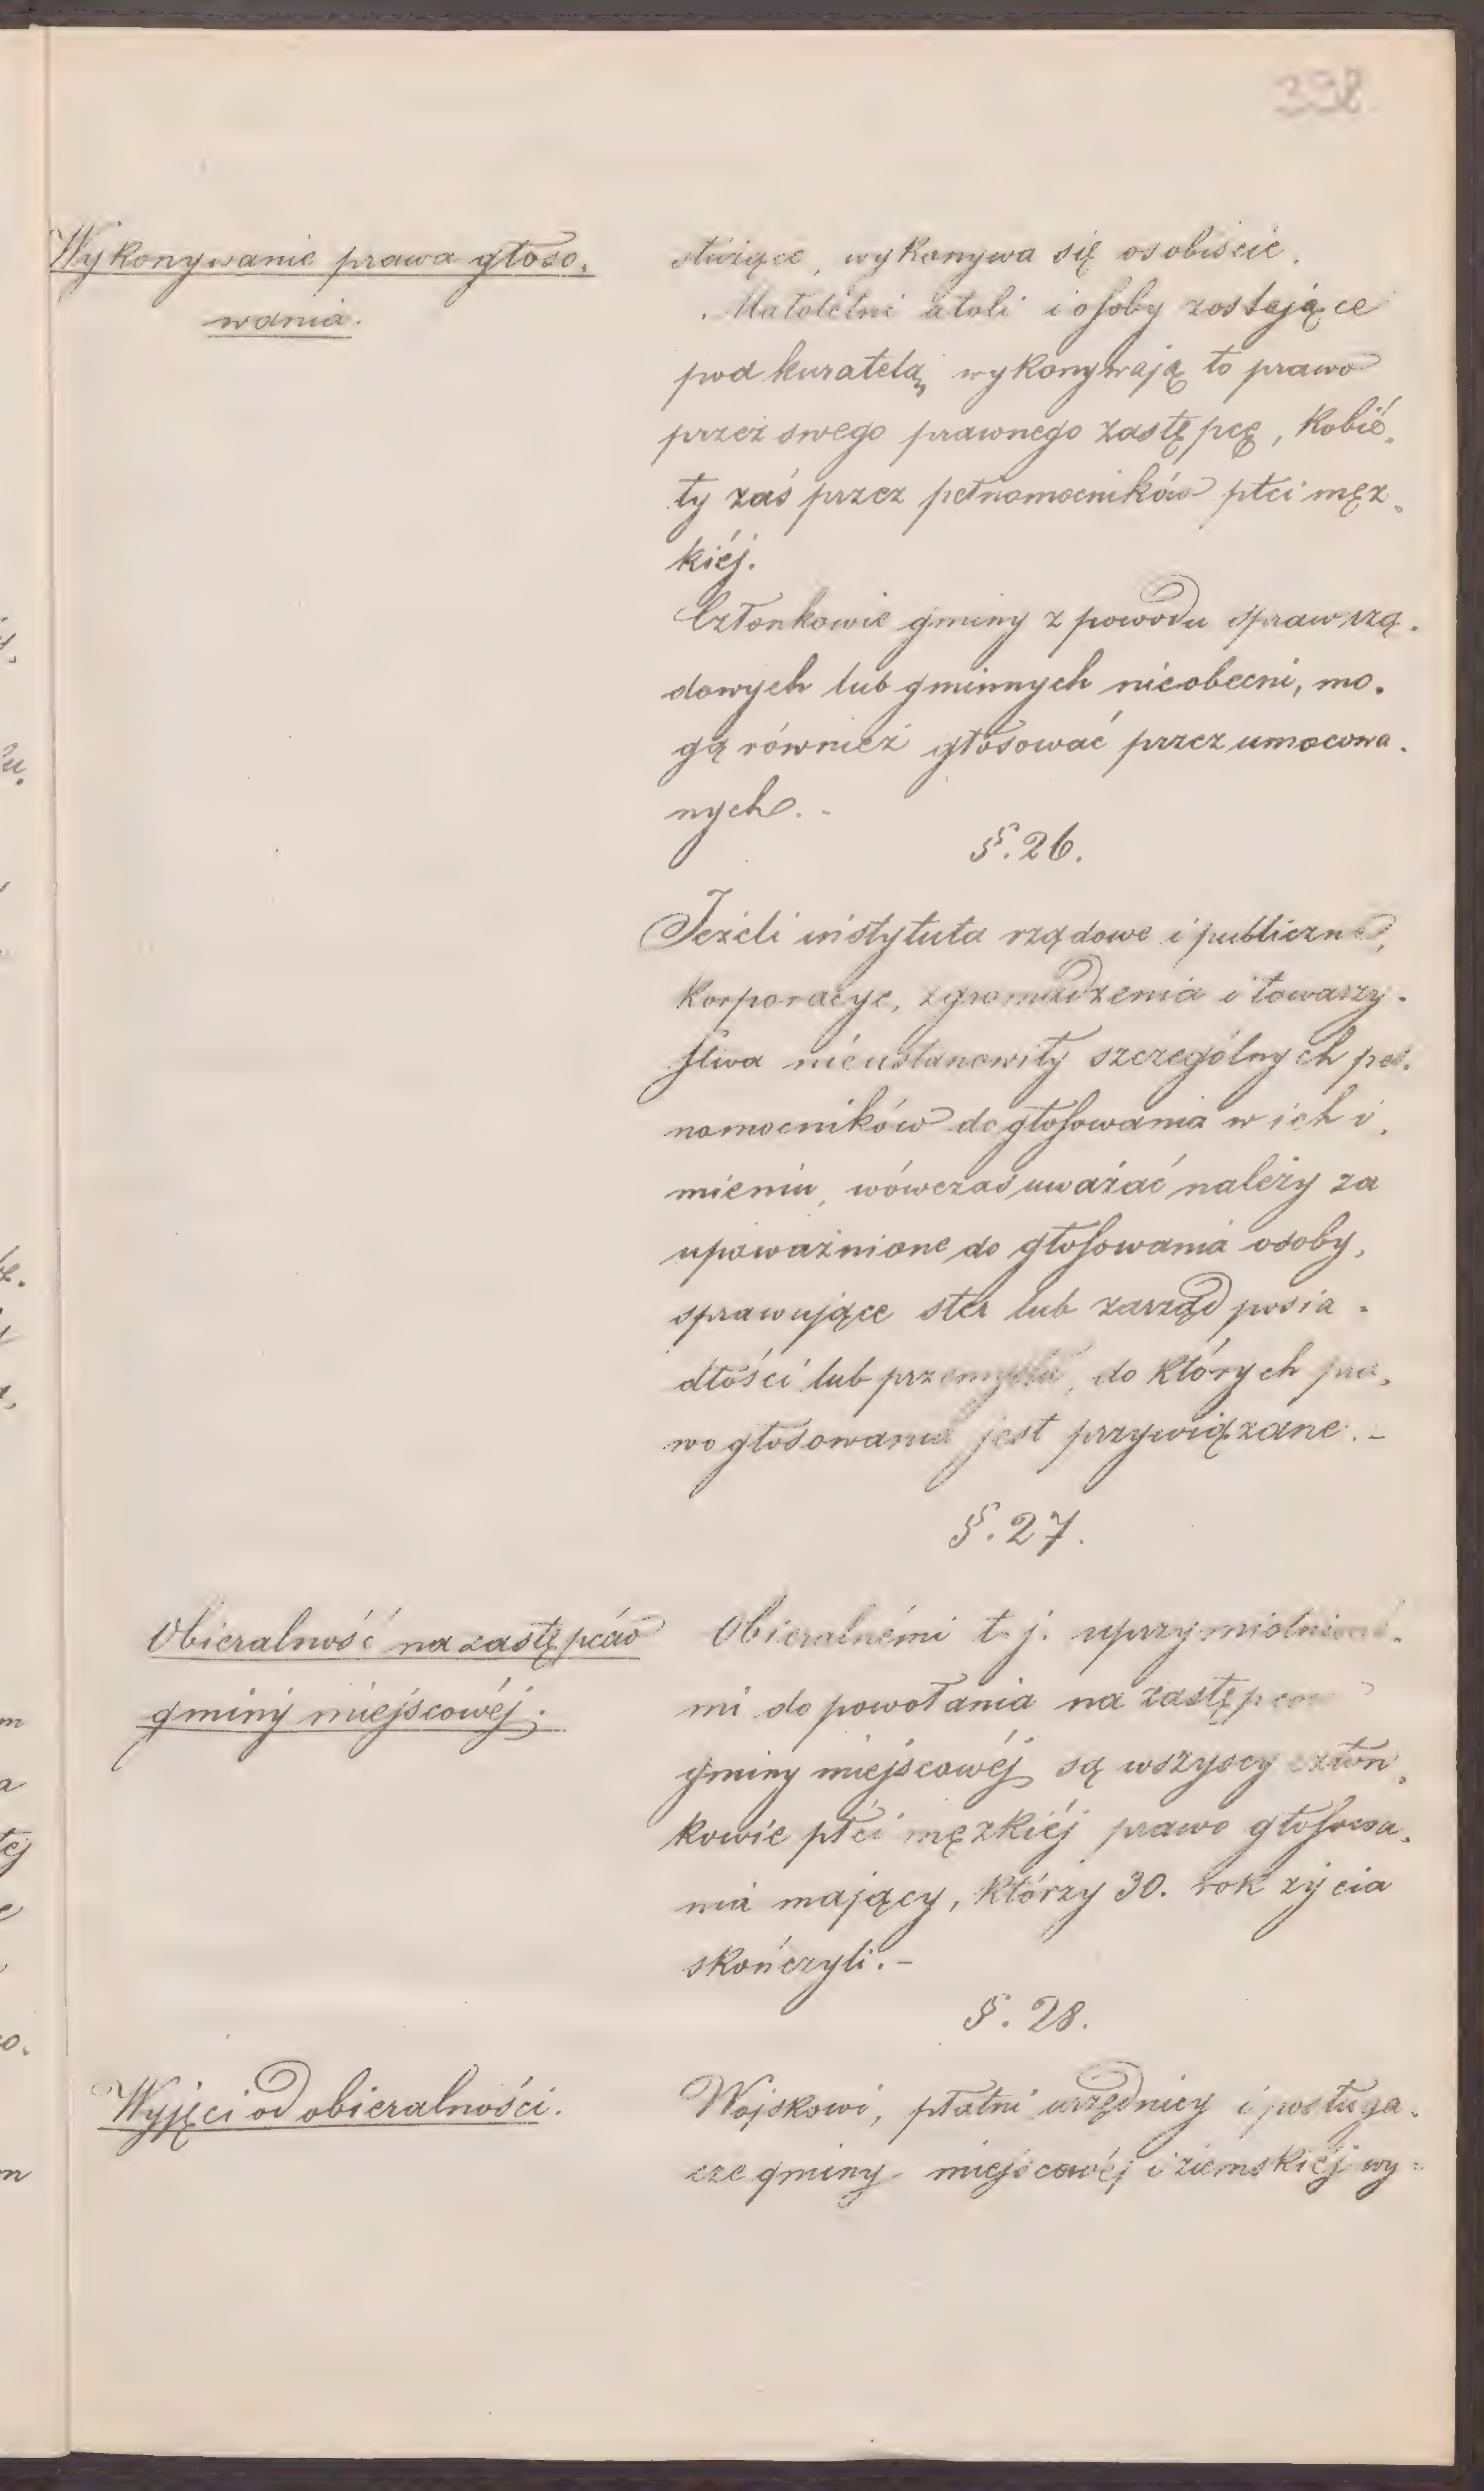 398
Wykonywanie prawa głoso„
wania.
służące, wykonywa się osobiście.
Małoletni atoli i osoby zostające
pod kuratelą, wykonywają to prawo
przez swego prawnego zastępcę, kobié„
ty zaś przez pełnomocników płci męz„
kiéj.
Członkowie gminy z powodu spraw rzą„
dowych lub gminnych nieobecni, mo„
gą również głosować przez umocowa„
nych. -
§. 26.
Jeżeli instytuta rządowe i publiczne,
korporacye, zgromadzenia i towarzy„
stwa nieustanowiły szczególnych peł„
nomocników do głosowania w ich i„
mieniu, wówczas uważać należy za
upoważnione do głosowania osoby,
sprawujące ster lub zarząd posia„
dłości lub przemysłu, do których pra„
wo głosowania jest przywiązane. -
§. 27.
Obieralność na zastępców
gminy miejscowéj.
Obieralnémi t. j. uprzymiotnioné„
mi do powołania na zastępców
gminy miejscowéj są wszyscy człon„
kowie płci męzkiéj prawo głosowa„
nia mający, którzy 30. rok życia
skończyli. -
§. 28.
Wyjęci od obieralności.
Wojskowi, płatni urzędnicy i posługa„
cze gminy miejscowéj i ziemskiéj wy„